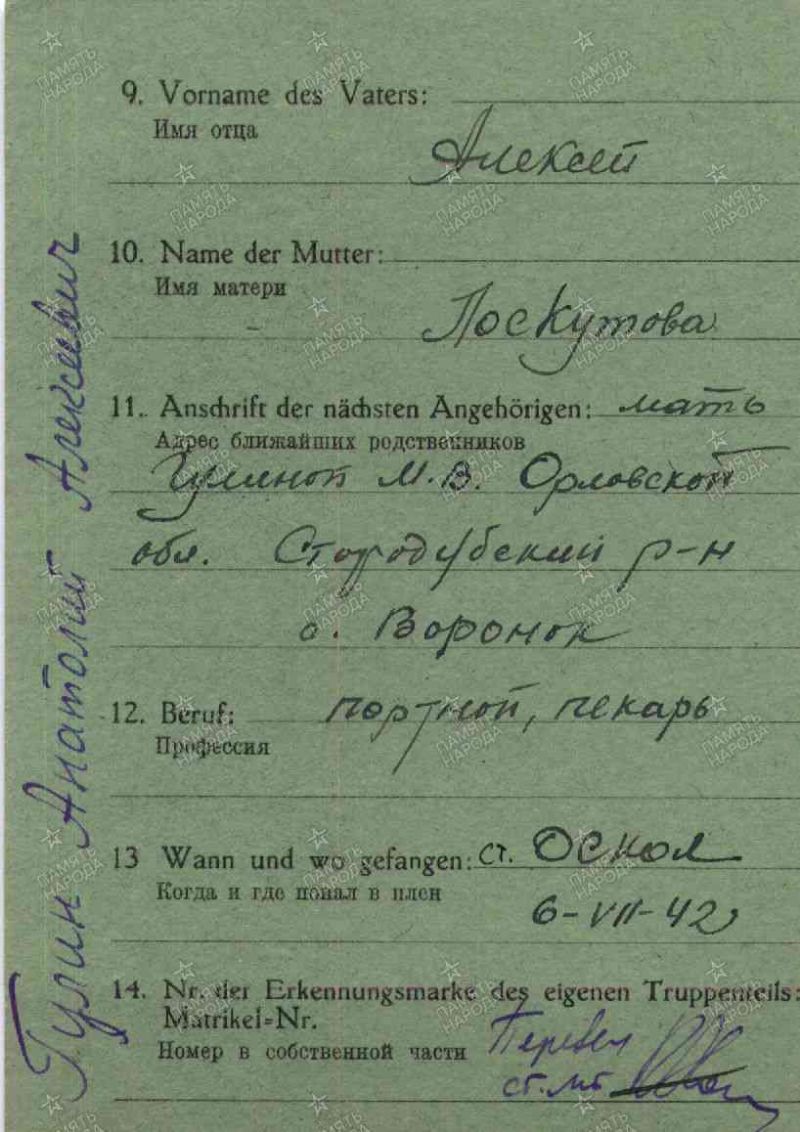 9. Vorname des Vaters:
Имя отца
Алексей
10. Name der Mutter:
Имя матери
Лоскутова
11. Anschrift der nächsten Angehörigen: мать
Адрес ближайших родственников
Гулиной М.В. Орловской
обл. Стародубский р-н
с. Воронок
12. Beruf: портной, пекарь
Профессия
13 Wann und wo gefangen: ст. Оскол
Когда и где попал в плен
6-VII-42
14. Nr. der Erkennungsmarke des eigenen Truppenteils:
Matrikel=Nr.
Номер в собственной части
Перевел
ст. лт
Гулин Анатолий Алексеевич
ПАМЯТЬ НАРОДА